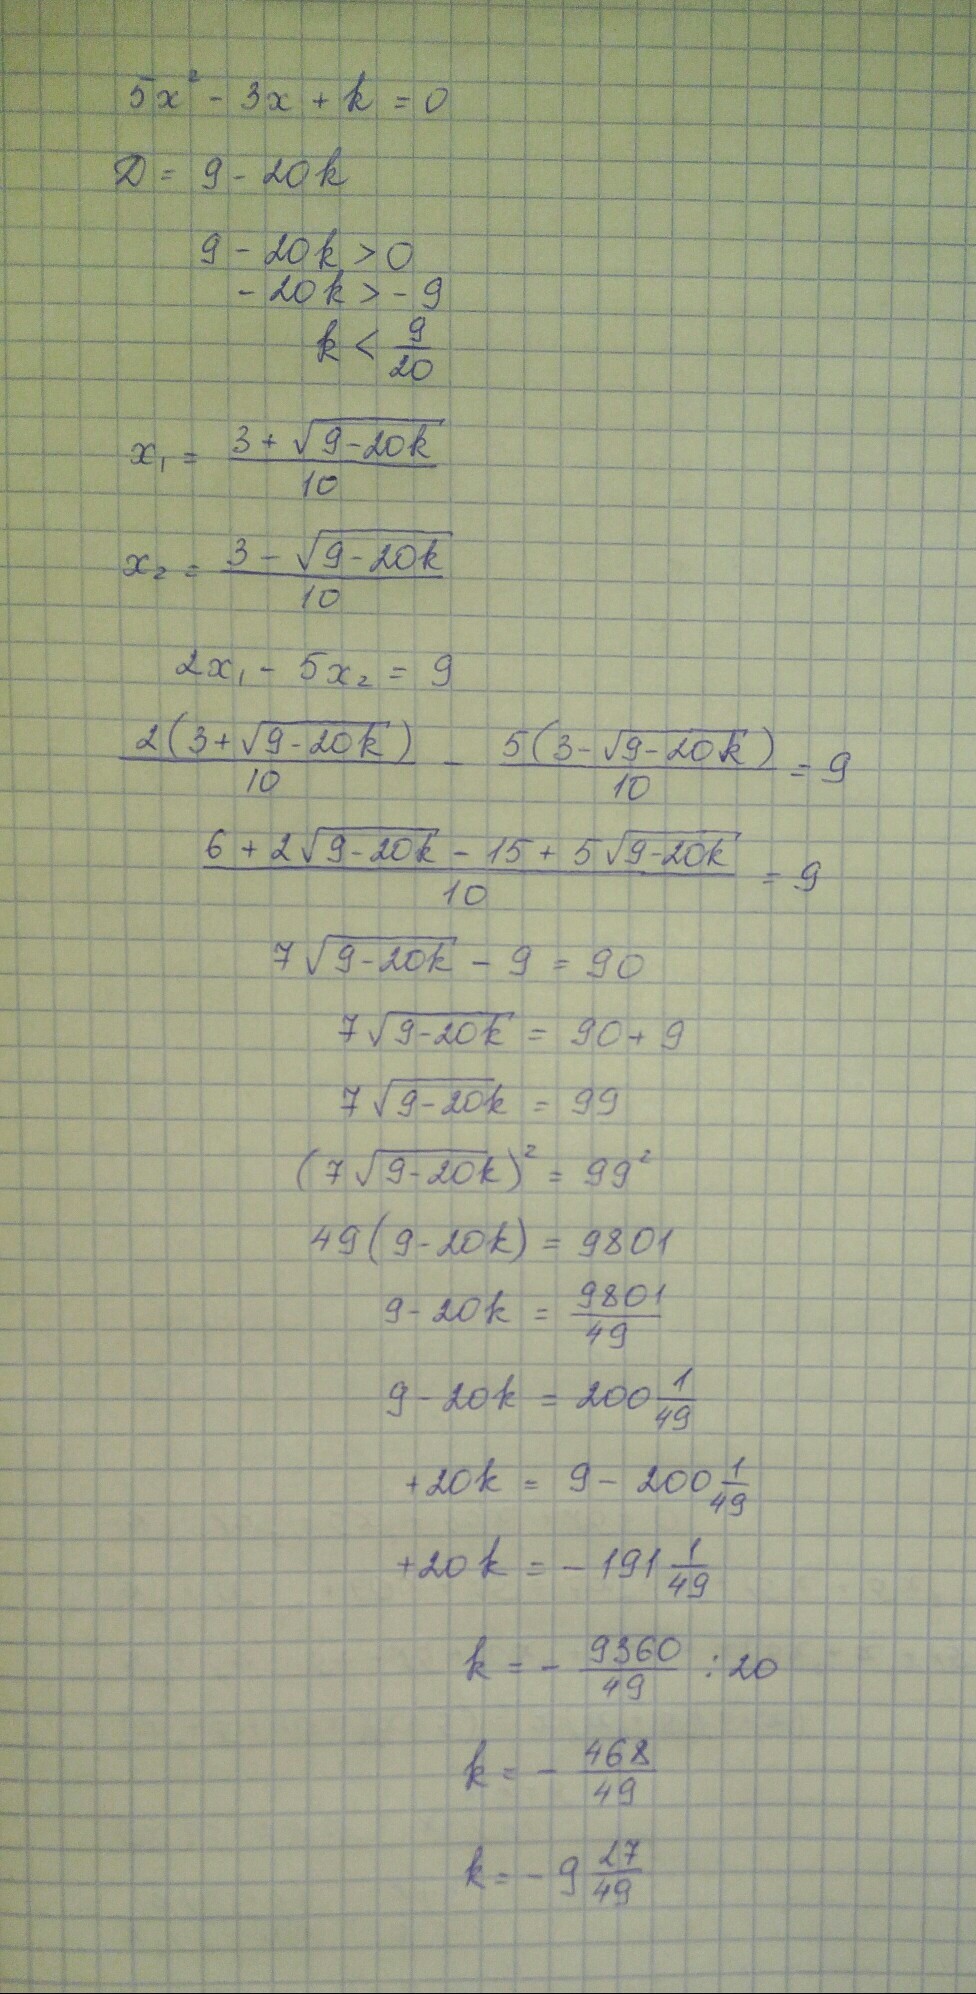 5x² - 3x + k = 0
D = 9 - 20k
9 - 20k > 0
- 20k > - 9
k < 9/20
x₁ = (3 + √(9-20k))/10
x₂ = (3 - √(9-20k))/10
2x₁ - 5x₂ = 9
2(3+√(9-20k))/10 - 5(3-√(9-20k))/10 = 9
(6 + 2√(9-20k) - 15 + 5√(9-20k))/10 = 9
7√(9-20k) - 9 = 90
7√(9-20k) = 90+9
7√(9-20k) = 99
(7√(9-20k))² = 99²
49(9-20k) = 9801
9-20k = 9801/49
9-20k = 200 1/49
+20k = 9 - 200 1/49
+20k = - 191 1/49
k = - 9360/49 : 20
k = - 468/49
k = - 9 27/49